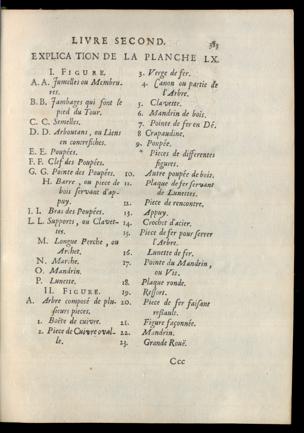 LIVRE SECOND. 383
EXPLICATION DE LA PLANCHE LX.
I. FIGURE.
A. A. Jumelles ou Membrures.
B. B. Jambages qui font le
pied du Tour.
C. C. Semelles.
D. D. Arboutans, ou Liens
en contrefiches.
E. E. Poupées.
F. F. Clef des Poupées.
G. G. Pointe des Poupées.
H. Barre, ou piece de
bois servant d'ap-
puy.
I. I. Bras des Poupées.
L. L. Supports, ou Clavet-
tes.
M. Longue Perche, ou
Archet.
N. Marche.
O. Mandrin.
P. Lunette.
II. FIGURE.
A. Arbre composé de plu-
sieurs pieces.
1. Boëte de cuivre.
2. Piece de Cuivre oval-
le.
3. Verge de fer.
4. Canon ou partie de
l'Arbre.
5. Clavette.
6. Mandrin de bois.
7. Pointe de fer en Dé.
8 Crapaudine.
9. Poupée.
* Pieces de differentes
figures.
10. Autre poupée de bois.
11. Plaque de fer servant
de Lunettes.
12. Piece de rencontre.
13. Appuy.
14. Crochet d'acier.
15. Piece de fer pour serrer
l'Arbre.
16. Lunette de fer.
17. Pointe du Mandrin,
ou Vis.
18. Plaque ronde.
19. Ressors.
20. Piece de fer faisant
ressault.
21. Figure façonnée.
22. Mandrin.
23. Grande Rouë.
Ccc